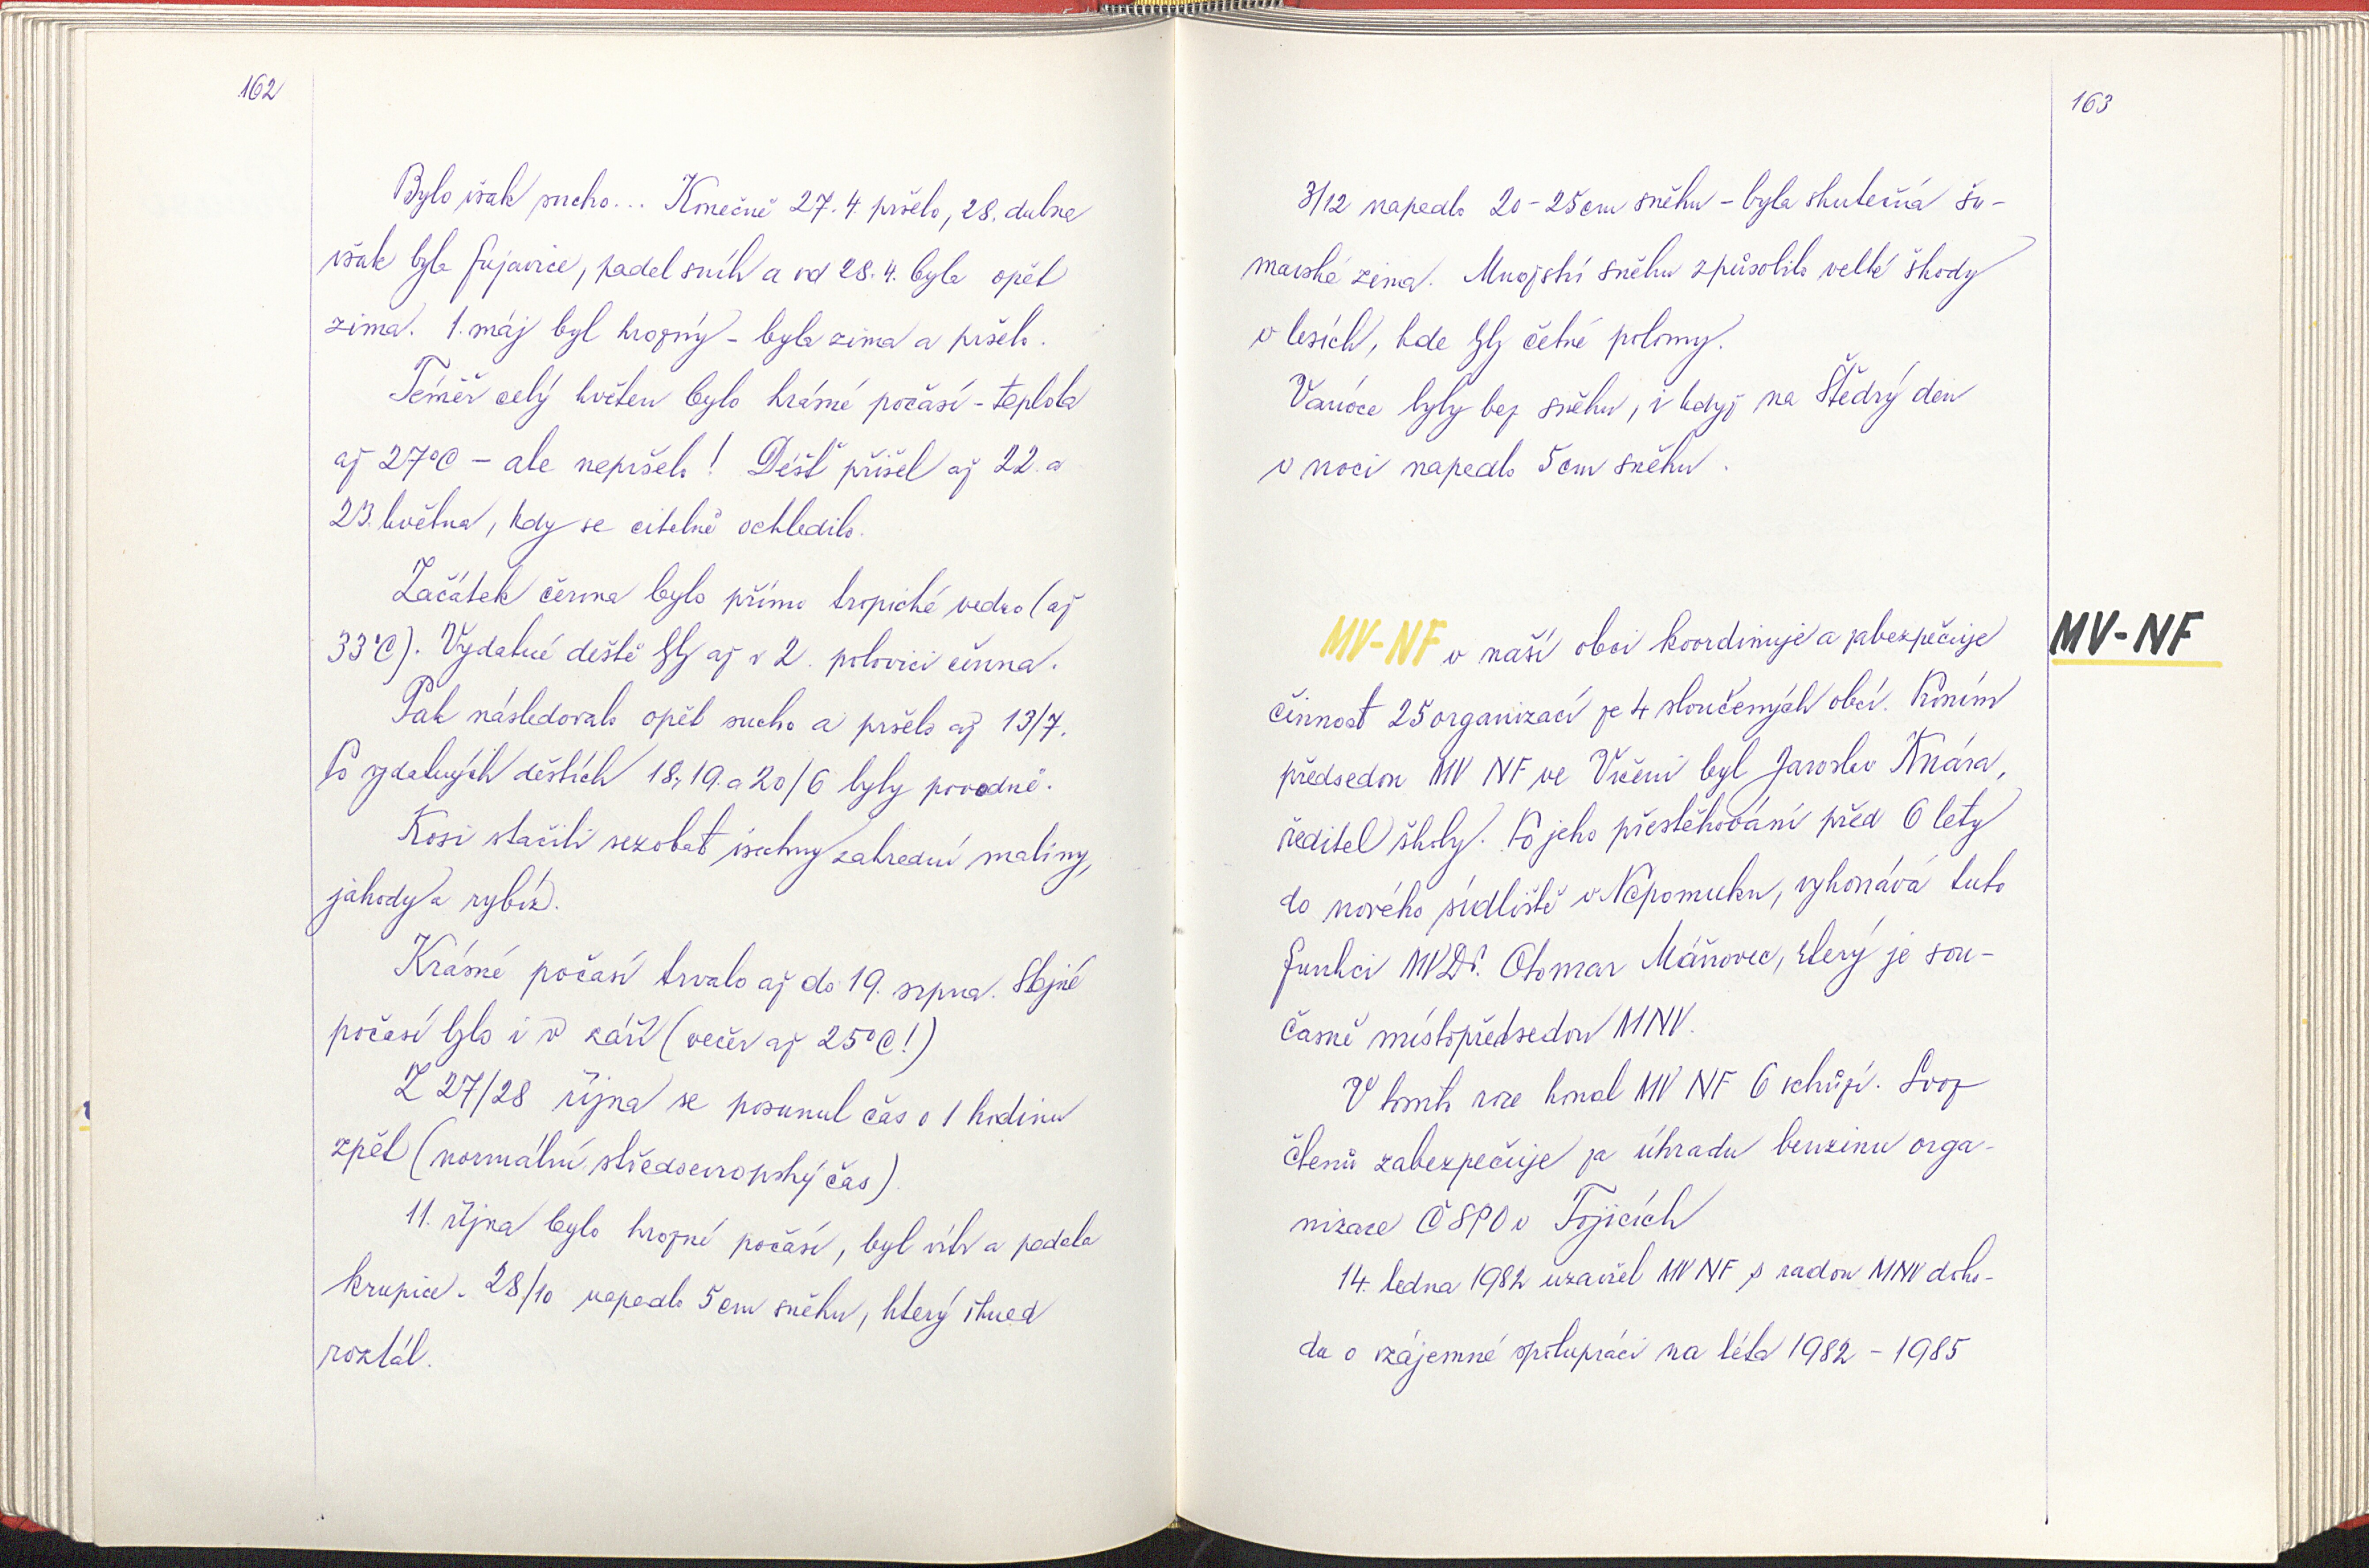 162
Bylo však sucho... Konečně 27.4. pršelo, 28. dubna
však byla fujavice, padal sníh a od 28.4. byla opět
zima. 1. máj byl hrozný - byla zima a pršelo.
Téměř celý květen bylo krásné počasí - teplota
až 27°C - ale nepršelo! Déšť přišel až 22. a
23. května, kdy se citelně ochladilo.
Začátek června bylo přímo tropické vedro (až
33°C). Vydatné deště byly až v 2. polovici června.
Pak následovalo opět sucho a pršelo až 13/7.
Po vydatných deštích 18., 19. a 20/6 byly povodně.
Kosi stačili sezobat všechny zahradní maliny,
jahody a rybíz.
Krásné počasí trvalo až do 19. srpna. Stejné
počasí bylo i v září (večer až 25°C!)
Z 27/28 října se posunul čas o 1 hodinu
zpět (normální středoevropský čas).
11. října bylo hrozné počasí, byl vítr a padala
krupice. 28/10 napadlo 5 cm sněhu, který ihned
roztál.
163
3/12 napadlo 20-25 cm sněhu - byla skutečná šu-
mavská zima. Množství sněhu způsobilo velké škody
v lesích, kde byly četné polomy.
Vánoce byly bez sněhu, i když na Štědrý den
v noci napadlo 5 cm sněhu.
MV-NF v naší obci koordinuje a zabezpečuje
MV-NF
činnost 25 organizací ze 4 sloučených obcí. Prvním
předsedou MV NF ve Vrčeni byl Jaroslav Knára,
ředitel školy. Po jeho přestěhování před 6 lety
do nového sídliště v Nepomuku, vykonává tuto
funkci MVDr. Otomar Máňovec, který je sou-
časně místopředsedou MNV.
V tomto roce konal MV NF 6 schůzí. Svoz
členů zabezpečuje za úhradu benzinu orga-
nizace ČSPO v Tojicích
14. ledna 1982 uzavřel MV NF s radou MNV doho-
du o vzájemné spolupráci na léta 1982 - 1985